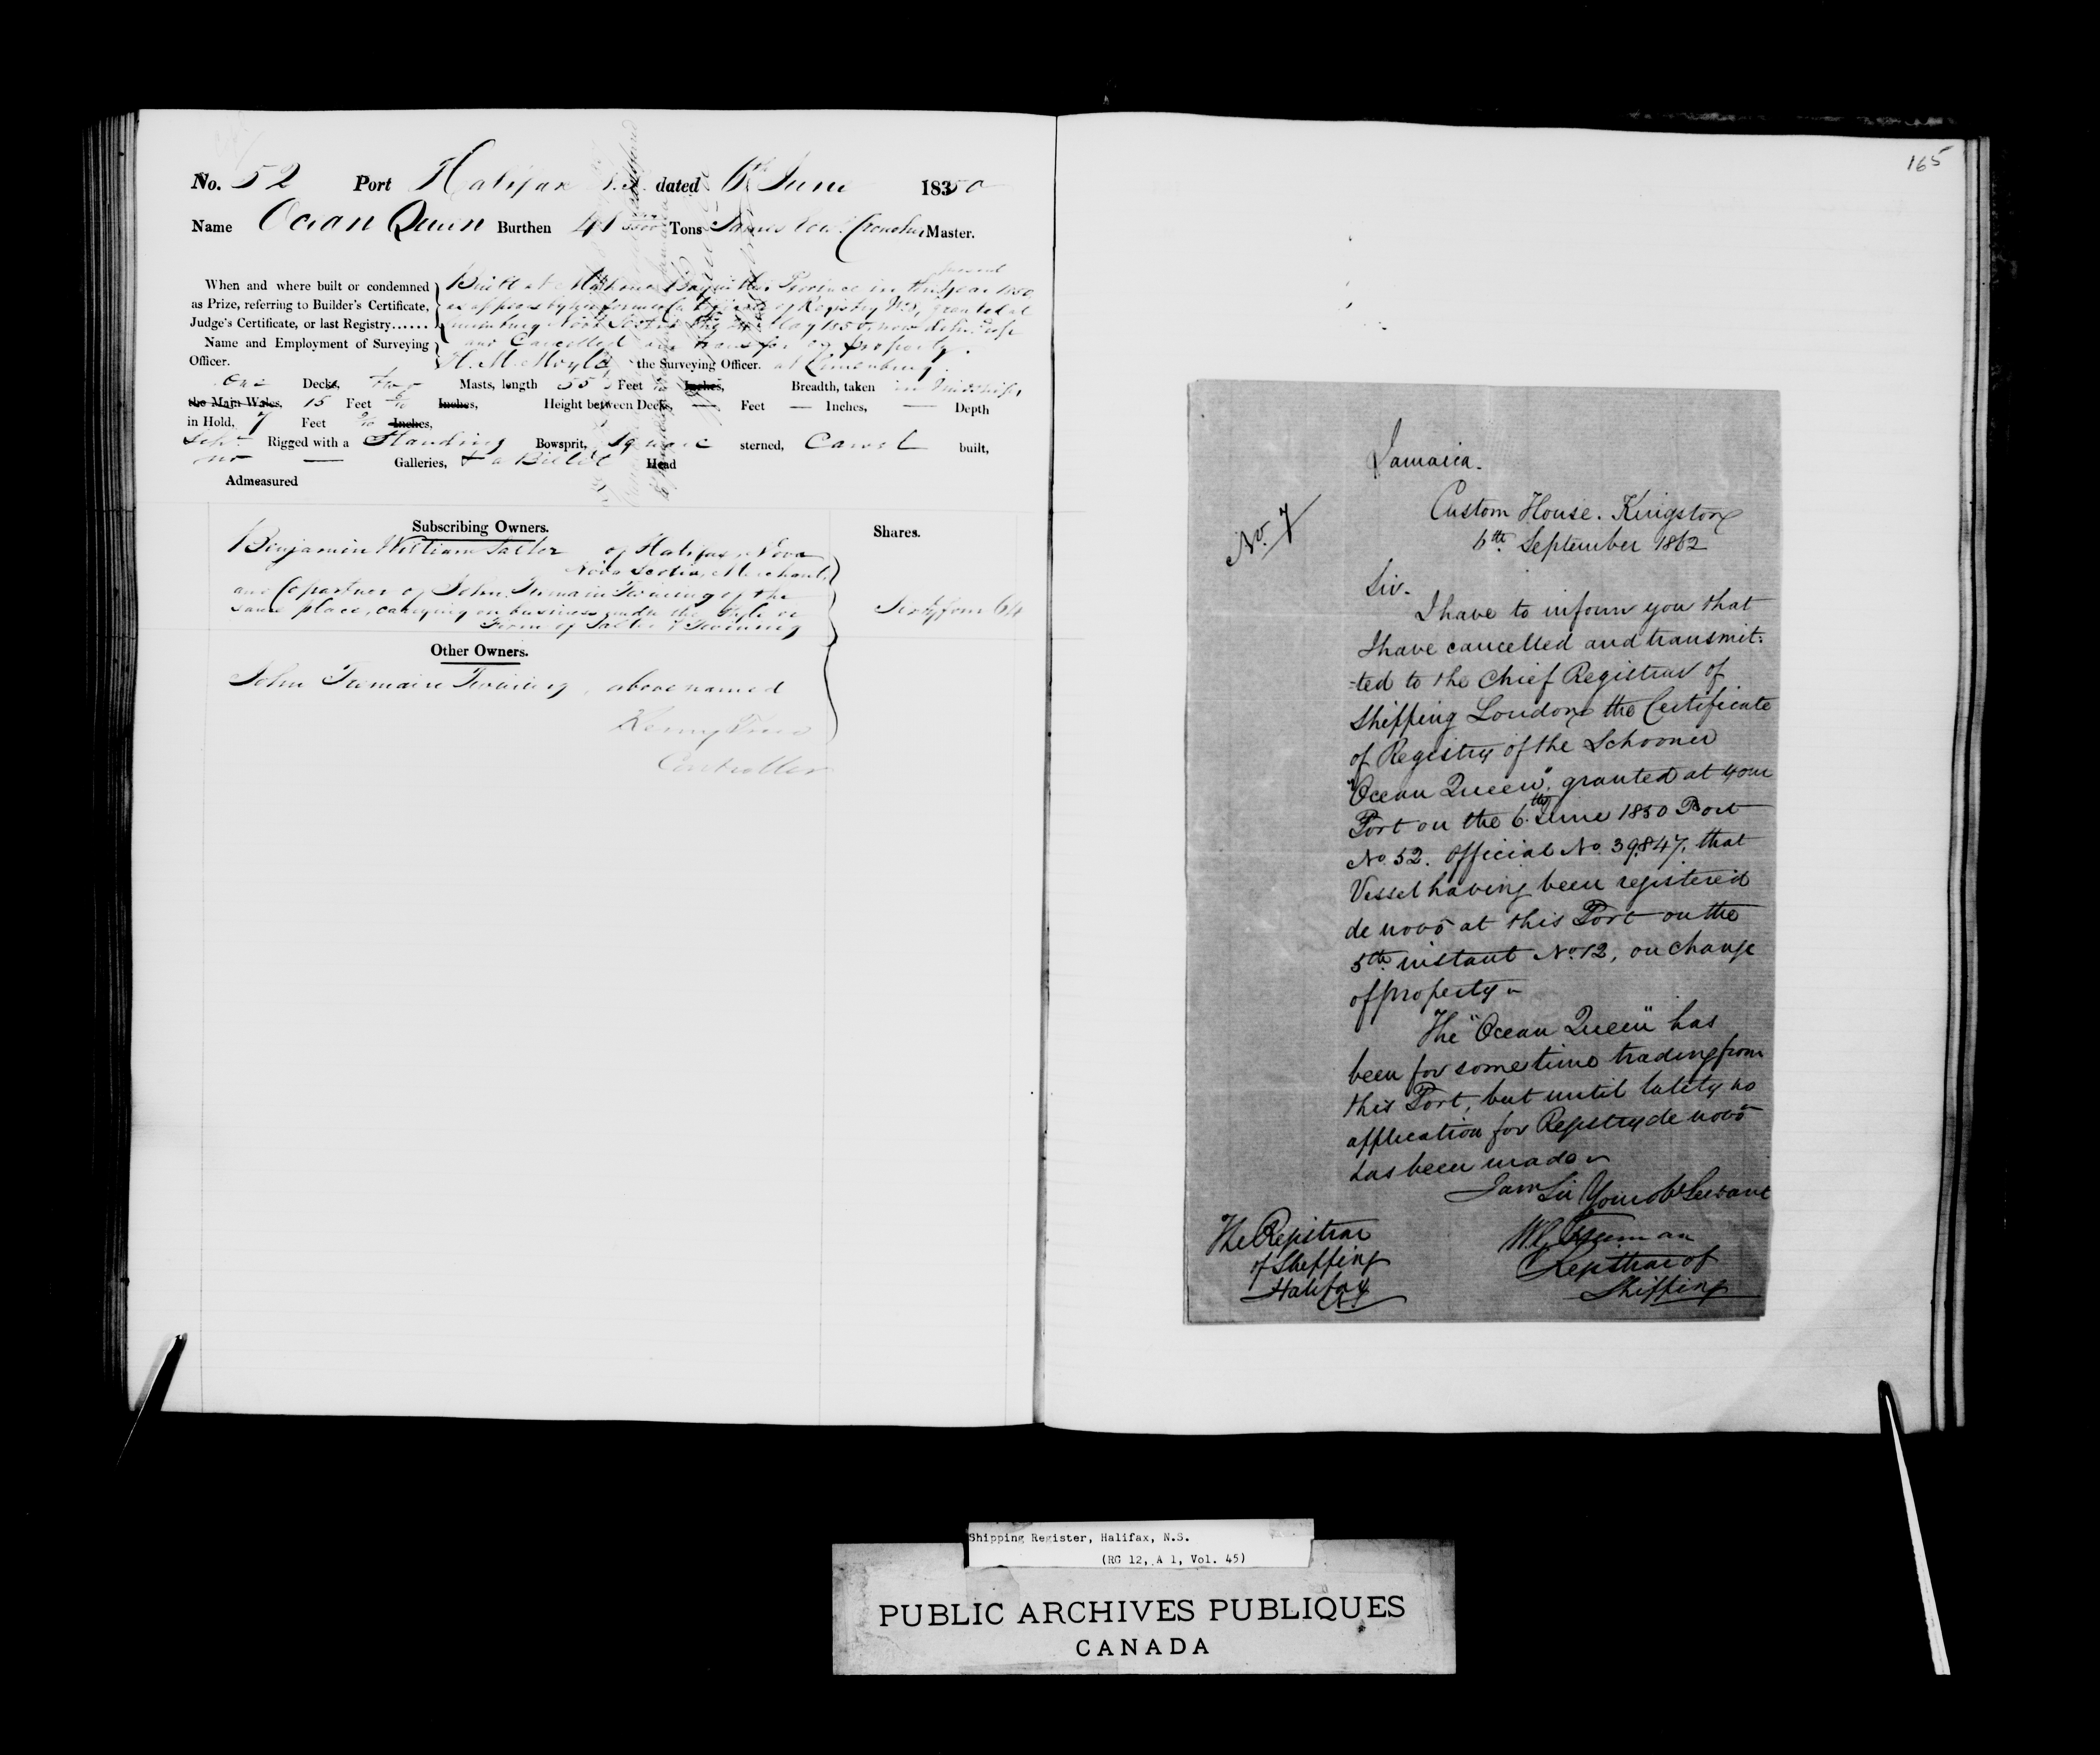 No. 52 Port Halifax N.S. dated 6th June 1850
Name Ocean Queen Burthen 41 Tons James Croucher Master.
When and where built or condemned
as Prize, referring to Builder's Certificate,
Judge's Certificate, or last Registry......
Built at Mahone Bay in this Province in the present year 1850,
as appears by her former Certificate of Registry No granted at
Lunenburg Nova Scotia May 1850 now delivd up
and Cancelled on transfer of property.
Name and Employment of Surveying
Officer.
H. M. Moyle the Surveying Officer. at Lunenburg.
One Decks, two Masts, length 55 Feet Inches, Breadth, taken in Midships
the Main Wales, 15 Feet Inches, Height between Decks, — Feet — Inches, — Depth
in Hold, 7 Feet Inches,
Schr Rigged with a Standing Bowsprit, Square sterned, Carvel built,
no — Galleries, & a Billet Head
Admeasured
Subscribing Owners.
Shares.
Benjamin William Salter of Halifax, Nova
Nova Scotia, Merchant,
and Copartner of John Tremain Twining of the
same place, carrying on business under the Style or
Firm of Salter & Twining
Sixty four 64
Other Owners.
John Tremain Twining, above named
Controller
165
Jamaica.
No. 7
Custom House. Kingston
6th September 1862
Sir.
I have to inform you that
I have cancelled and transmit-
-ted to the Chief Registrar of
Shipping London the Certificate
of Registry of the Schooner
"Ocean Queen", granted at your
Port on the 6th June 1850 Port
No. 52. Official No. 39.847. that
Vessel having been registered
de novo at this Port on the
5th instant No. 12, on change
of property
The "Ocean Queen" has
been for some time trading from
this Port, but until lately no
application for Registry de novo
has been made
I am Sir Your obt Servant
Registrar of
Shipping
The Registrar
of Shipping
Halifax
Shipping Register, Halifax, N.S.
(RG 12, A 1, Vol. 45)
PUBLIC ARCHIVES PUBLIQUES
CANADA